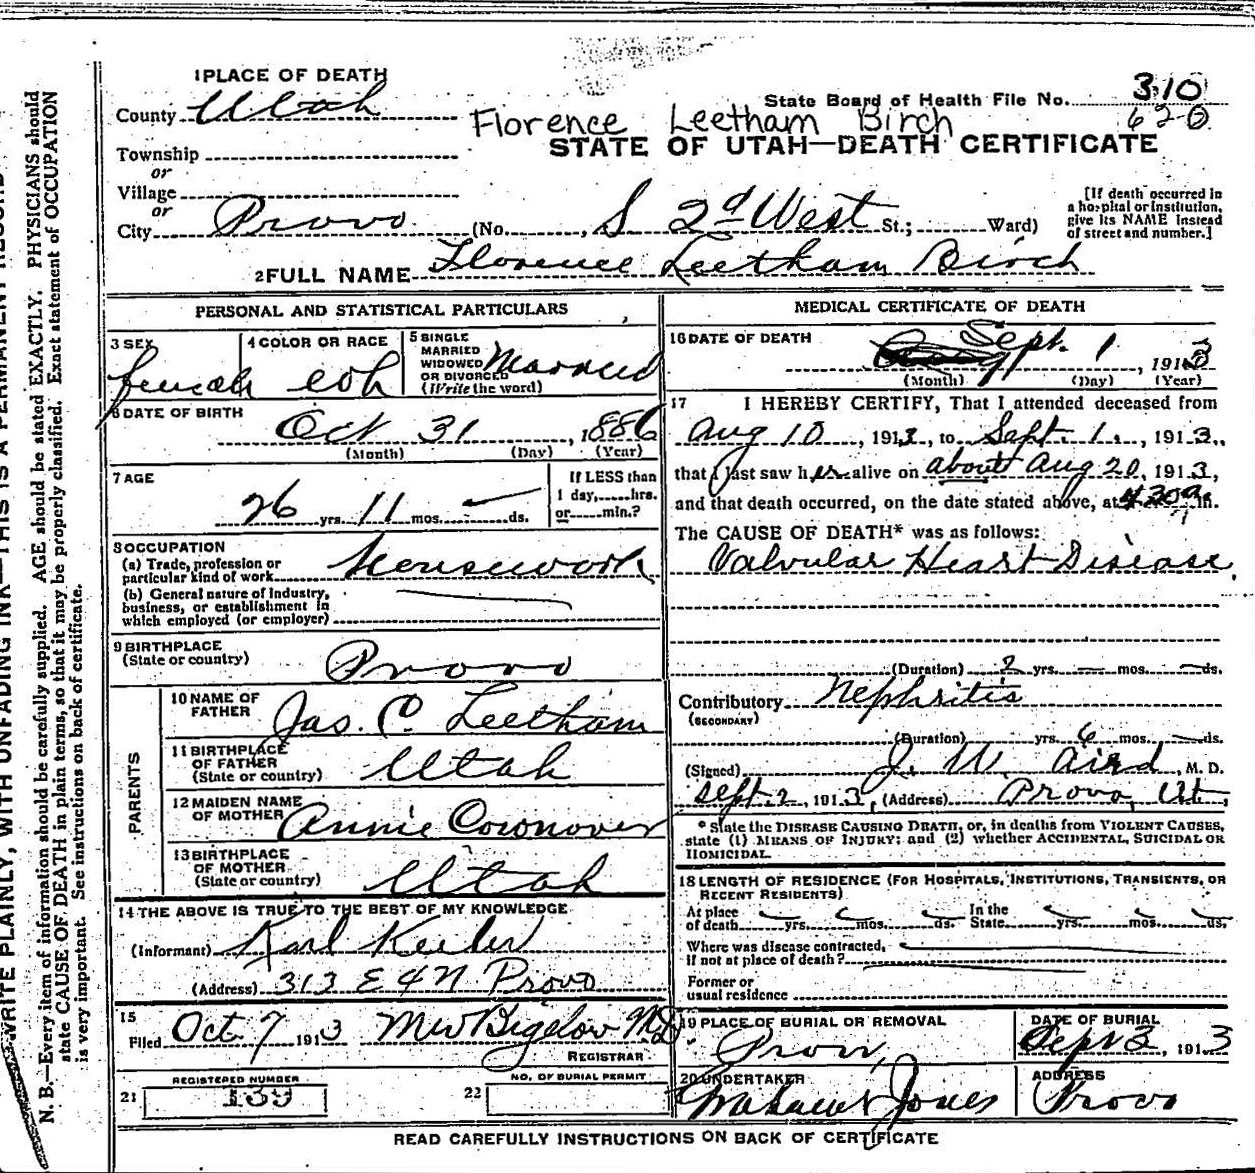 1 PLACE OF DEATH
County Utah
State Board of Health File No. 310
620
Florence Leetham Birch
Township
STATE OF UTAH—DEATH CERTIFICATE
or
Village
or
City Provo (No. , S 2d West St.; Ward)
[If death occurred in
a hospital or institution,
give its NAME instead
of street and number.]
2 FULL NAME Florence Leetham Birch
PERSONAL AND STATISTICAL PARTICULARS
3 SEX
female
4 COLOR OR RACE
5 SINGLE
MARRIED
WIDOWED
OR DIVORCED
(Write the word)
Married
6 DATE OF BIRTH
Oct 31, 1886
(Month) (Day) (Year)
7 AGE
26 yrs. 11 mos. ds.
If LESS than
1 day, hrs.
or min.?
8 OCCUPATION
(a) Trade, profession or
particular kind of work Housework
(b) General nature of Industry,
business, or establishment in
which employed (or employer)
9 BIRTHPLACE
(State or country) Provo
PARENTS
10 NAME OF
FATHER Jas. C Leetham
11 BIRTHPLACE
OF FATHER
(State or country) Utah
12 MAIDEN NAME
OF MOTHER Annie Coronover
13 BIRTHPLACE
OF MOTHER
(State or country) Utah
14 THE ABOVE IS TRUE TO THE BEST OF MY KNOWLEDGE
(Informant) Karl Keeler
(Address) 313 E 4 N Provo
15
Filed Oct. 7 1913 Bigelow M.D.
REGISTRAR
REGISTERED NUMBER
21 139
NO. OF BURIAL PERMIT
22
MEDICAL CERTIFICATE OF DEATH
16 DATE OF DEATH
Sept. 1, 1913
(Month) (Day) (Year)
17 I HEREBY CERTIFY, That I attended deceased from
Aug 10, 1913, to Sept. 1., 1913.,
that I last saw her alive on about Aug 20, 1913,
and that death occurred, on the date stated above, at 4 30a m.
The CAUSE OF DEATH* was as follows:
Valvular Heart Disease.
(Duration) 2 yrs. — mos. — ds.
Contributory Nephritis
(SECONDARY)
(Duration) yrs. 6 mos. — ds.
(Signed) J. W. Aird, M. D.
Sept. 2, 1913, (Address) Provo, Ut,
* State the DISEASE CAUSING DEATH, or, in deaths from VIOLENT CAUSES,
state (1) MEANS OF INJURY; and (2) whether ACCIDENTAL, SUICIDAL OR
HOMICIDAL.
18 LENGTH OF RESIDENCE (FOR HOSPITALS, INSTITUTIONS, TRANSIENTS, OR
RECENT RESIDENTS)
At place
of death yrs. mos. ds.
In the
State yrs. mos. ds.
Where was disease contracted,
if not at place of death?
Former or
usual residence
19 PLACE OF BURIAL OR REMOVAL
Provo,
DATE OF BURIAL
Sept 3, 1913
20 UNDERTAKER
Jones
ADDRESS
Provo
READ CAREFULLY INSTRUCTIONS ON BACK OF CERTIFICATE
WRITE PLAINLY, WITH UNFADING INK—THIS IS A PERMANENT RECORD
N. B.—Every item of information should be carefully supplied. AGE should be stated EXACTLY. PHYSICIANS should
state CAUSE OF DEATH in plain terms, so that it may be properly classified. Exact statement of OCCUPATION
is very important. See instructions on back of certificate.